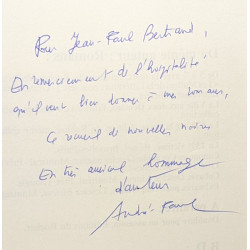 Pour Jean-Paul Bertrand,
En remerciement de l'hospitalité
qu'il veut bien donner à mes romans,
Ce recueil de nouvelles noires
En très amical hommage
d'auteur
André